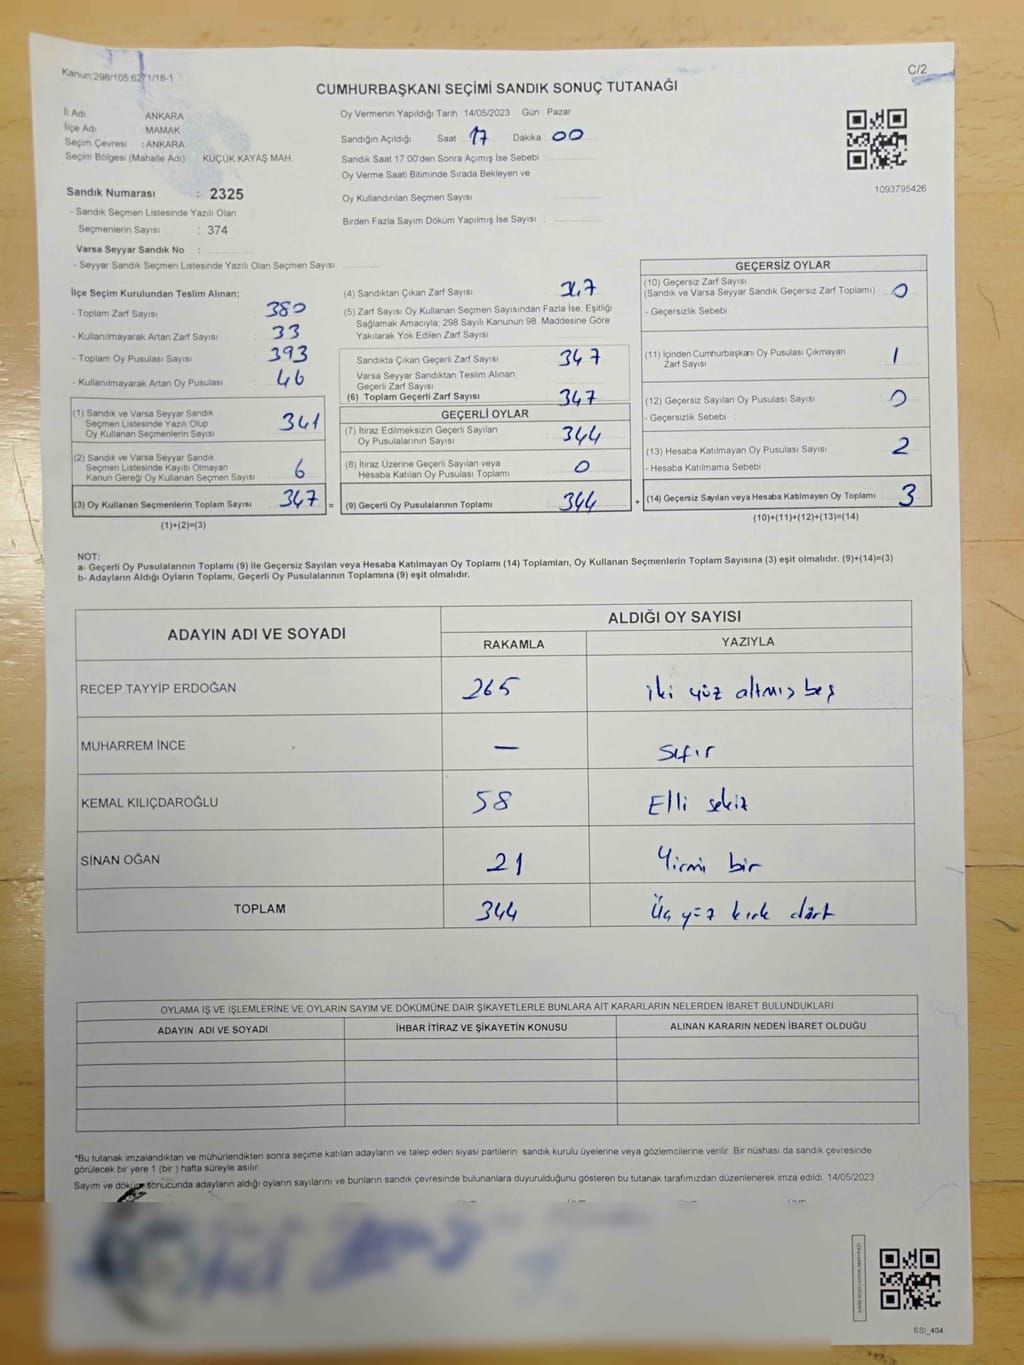 Kanun:298/105,6271/18-1
C/2
CUMHURBAŞKANI SEÇİMİ SANDIK SONUÇ TUTANAĞI
İl Adı ANKARA
İlçe Adı MAMAK
Seçim Çevresi : ANKARA
Seçim Bölgesi (Mahalle Adı) : KÜÇÜK KAYAŞ MAH.
Sandık Numarası : 2325
- Sandık Seçmen Listesinde Yazılı Olan
Seçmenlerin Sayısı : 374
Varsa Seyyar Sandık No :
- Seyyar Sandık Seçmen Listesinde Yazılı Olan Seçmen Sayısı
Oy Vermenin Yapıldığı Tarih : 14/05/2023 Gün Pazar
Sandığın Açıldığı Saat 17 Dakika 00
Sandık Saat 17:00'den Sonra Açımış İse Sebebi
Oy Verme Saati Bitiminde Sırada Bekleyen ve
Oy Kullandırılan Seçmen Sayısı
Birden Fazla Sayım Döküm Yapılmış İse Sayısı :
1093795426
İlçe Seçim Kurulundan Teslim Alınan;
- Toplam Zarf Sayısı : 380
- Kullanılmayarak Artan Zarf Sayısı : 33
- Toplam Oy Pusulası Sayısı : 393
- Kullanılmayarak Artan Oy Pusulası : 46
(1) Sandık ve Varsa Seyyar Sandık
Seçmen Listesinde Yazılı Olup
Oy Kullanan Seçmenlerin Sayısı 341
(2) Sandık ve Varsa Seyyar Sandık
Seçmen Listesinde Kayıtlı Olmayan
Kanun Gereği Oy Kullanan Seçmen Sayısı 6
(3) Oy Kullanan Seçmenlerin Toplam Sayısı 347 =
(1)+(2)=(3)
(4) Sandıktan Çıkan Zarf Sayısı
(5) Zarf Sayısı Oy Kullanan Seçmen Sayısından Fazla İse, Eşitliği
Sağlamak Amacıyla; 298 Sayılı Kanunun 98. Maddesine Göre
Yakılarak Yok Edilen Zarf Sayısı
Sandıkta Çıkan Geçerli Zarf Sayısı 347
Varsa Seyyar Sandıktan Teslim Alınan
Geçerli Zarf Sayısı
(6) Toplam Geçerli Zarf Sayısı 347
GEÇERLİ OYLAR
(7) İtiraz Edilmeksizin Geçerli Sayılan
Oy Pusulalarının Sayısı 344
(8) İtiraz Üzerine Geçerli Sayılan veya
Hesaba Katılan Oy Pusulası Toplamı 0
(9) Geçerli Oy Pusulalarının Toplamı 344 +
GEÇERSİZ OYLAR
(10) Geçersiz Zarf Sayısı
(Sandık ve Varsa Seyyar Sandık Geçersiz Zarf Toplamı) : 0
- Geçersizlik Sebebi :
(11) İçinden Cumhurbaşkanı Oy Pusulası Çıkmayan
Zarf Sayısı 1
(12) Geçersiz Sayılan Oy Pusulası Sayısı 0
- Geçersizlik Sebebi :
(13) Hesaba Katılmayan Oy Pusulası Sayısı 2
- Hesaba Katılmama Sebebi :
(14) Geçersiz Sayılan veya Hesaba Katılmayan Oy Toplamı 3
(10)+(11)+(12)+(13)=(14)
NOT:
a- Geçerli Oy Pusulalarının Toplamı (9) ile Geçersiz Sayılan veya Hesaba Katılmayan Oy Toplamı (14) Toplamları, Oy Kullanan Seçmenlerin Toplam Sayısına (3) eşit olmalıdır. (9)+(14)=(3)
b- Adayların Aldığı Oyların Toplamı, Geçerli Oy Pusulalarının Toplamına (9) eşit olmalıdır.
ADAYIN ADI VE SOYADI
ALDIĞI OY SAYISI
RAKAMLA YAZIYLA
RECEP TAYYİP ERDOĞAN 265 iki yüz altmış beş
MUHARREM İNCE — Sıfır
KEMAL KILIÇDAROĞLU 58 Elli sekiz
SİNAN OĞAN 21 Yirmi bir
TOPLAM 344 Üç yüz kırk dört
OYLAMA İŞ VE İŞLEMLERİNE VE OYLARIN SAYIM VE DÖKÜMÜNE DAİR ŞİKAYETLERLE BUNLARA AİT KARARLARIN NELERDEN İBARET BULUNDUKLARI
ADAYIN ADI VE SOYADI İHBAR İTİRAZ VE ŞİKAYETİN KONUSU ALINAN KARARIN NEDEN İBARET OLDUĞU
*Bu tutanak imzalandıktan ve mühürlendikten sonra seçime katılan adayların ve talep eden siyasi partilerin sandık kurulu üyelerine veya gözlemcilerine verilir. Bir nüshası da sandık çevresinde
görülecek bir yere 1 (bir ) hafta süreyle asılır.
Sayım ve döküm sonucunda adayların aldığı oyların sayılarını ve bunların sandık çevresinde bulunanlara duyurulduğunu gösteren bu tutanak tarafımızdan düzenlenerek imza edildi. 14/05/2023
SSI_404